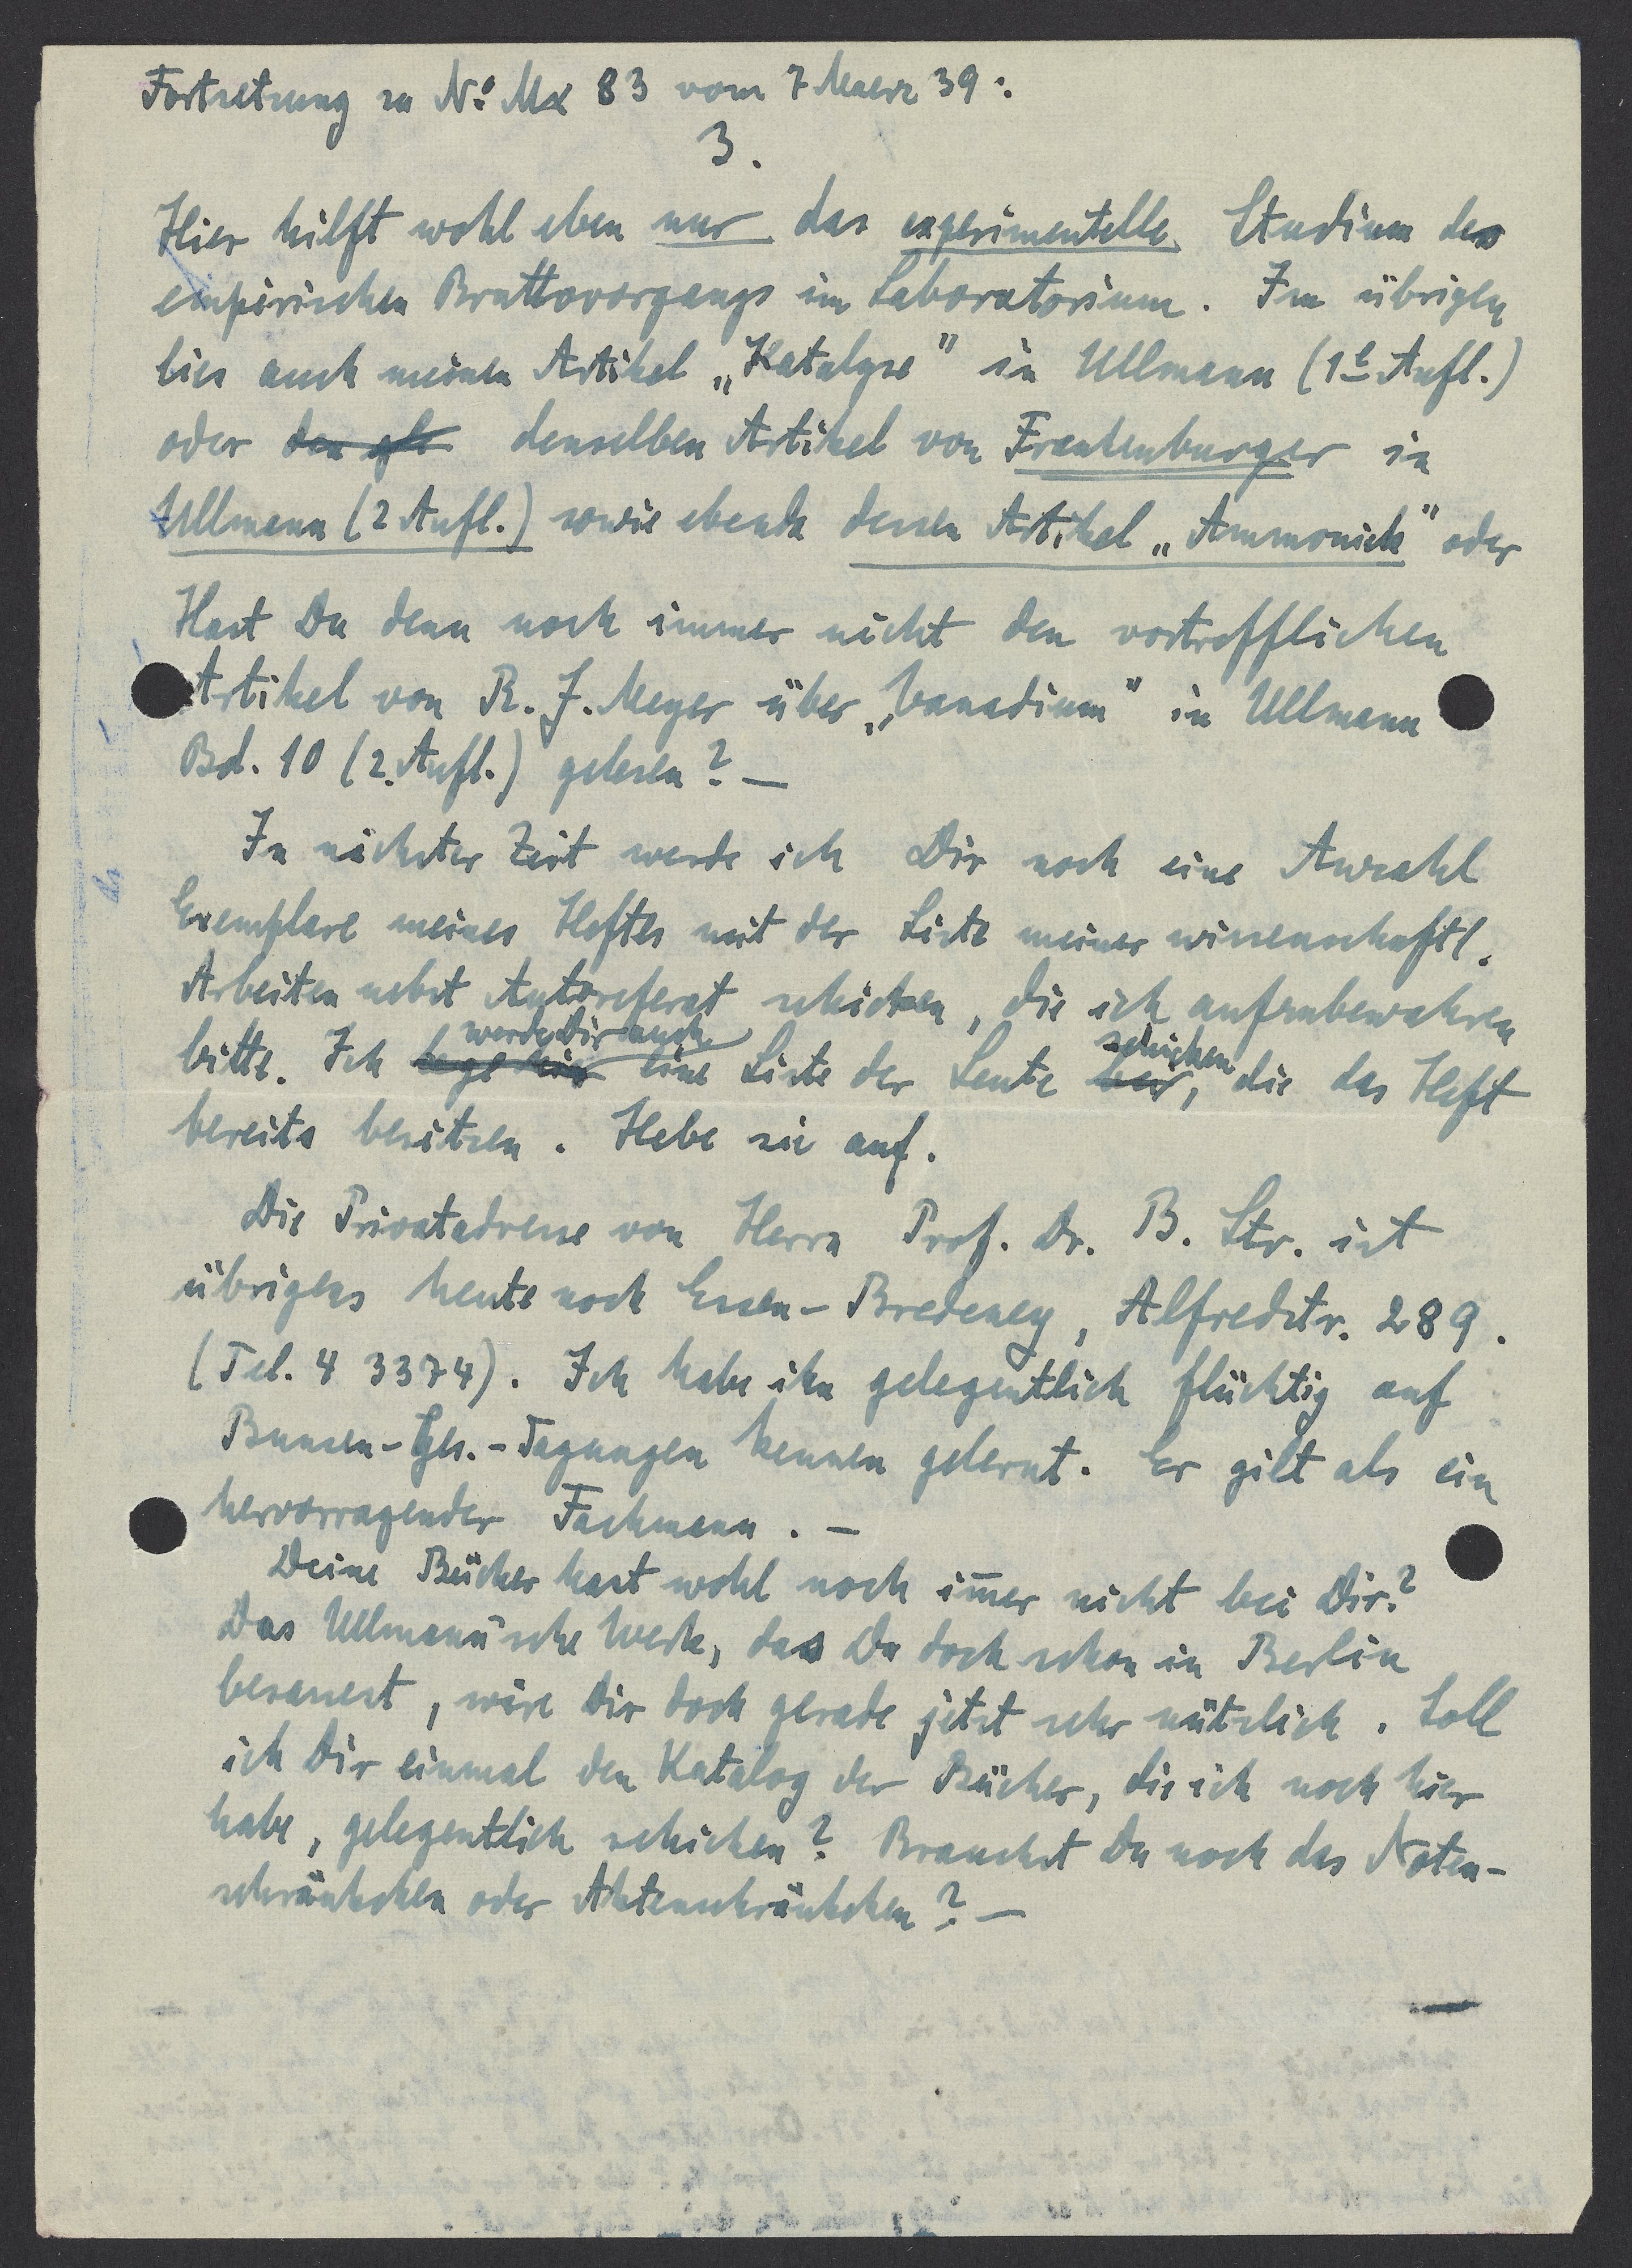 Fortsetzung zu No Mx 83 vom 7 Maerz 39:
3.
Hier hilft wohl eben nur das experimentelle Studium des
empirischen Bruttovorgangs im Laboratorium. Im übrigen
lies auch meinen Artikel „Katalyse" in Ullmann (1t Aufl.)
oder den gl denselben Artikel von Frankenburger in
Ullmann (2 Aufl.) sowie ebenda dessen Artikel „Ammoniak" oder
Hast Du denn noch immer nicht den vortrefflichen
Artikel von R. J. Meyer über „Vanadium" in Ullmann
Bd. 10 (2. Aufl.) gelesen? —
In nächster Zeit werde ich Dir noch eine Anzahl
Exemplare meines Heftes mit der Liste meiner wissenschaftl.
Arbeiten nebst Autoreferat schicken, die ich aufzubewahren
bitte. Ich lege hier werde Dir auch eine Liste der Leute bei, schicken die das Heft
bereits besitzen. Hebe sie auf.
Die Privatadresse von Herrn Prof. Dr. B. Str. ist
übrigens heute noch Essen-Bredeney, Alfredstr. 289.
(Tel. 4 3374). Ich habe ihn gelegentlich flüchtig auf
Bunsen-Ges.-Tagungen kennen gelernt. Er gilt als ein
hervorragender Fachmann. —
Deine Bücher hast wohl noch im̄er nicht bei Dir?
Das Ullmann'sche Werk, das Du doch schon in Berlin
besassest, wäre Dir doch gerade jetzt sehr nützlich. Soll
ich Dir einmal den Katalog der Bücher, die ich noch hier
habe, gelegentlich schicken? Brauchst Du noch das Noten-
schränkchen oder Aktenschränkchen? —